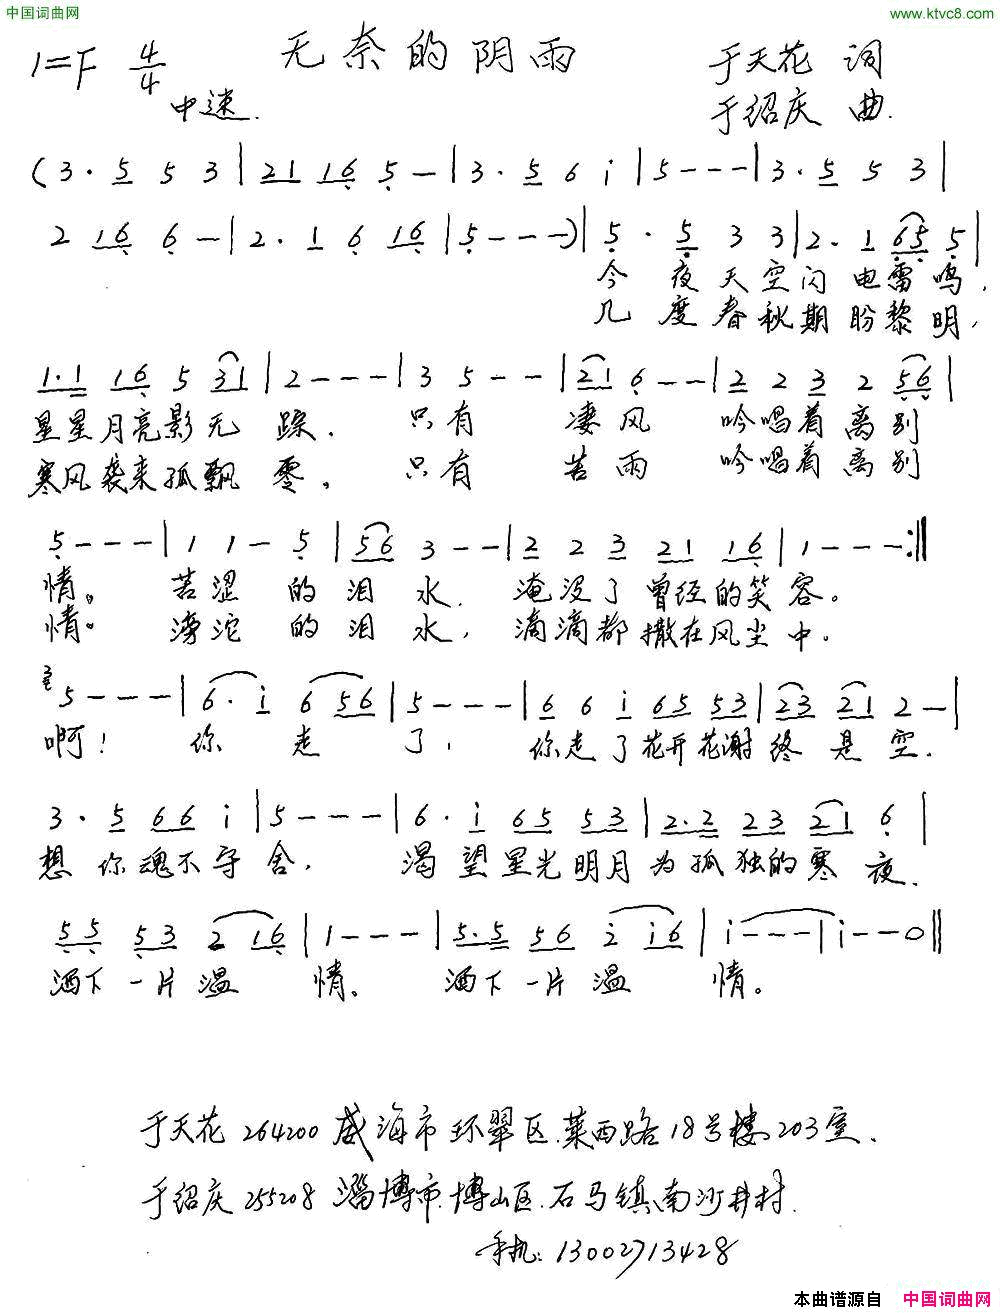 中国词曲网
www.ktvc8.com
1=F 4/4 无奈的阴雨 于天花 词
中速. 于绍庆 曲.
(3· 5 5 3 | 21 16 5 — | 3· 5 6 i | 5 - - - | 3· 5 5 3 |
2 16 6 — | 2· 1 6 16 | 5 - - -) | 5· 5 3 3 | 2· 1 65 5 |
今夜天空闪电雷鸣,
几度春秋期盼黎明,
1·1 16 5 31 | 2 - - - | 3 5 - - | 21 6 - - | 2 2 3 2 56 |
星星月亮影无踪. 只有凄风吟唱着离别
寒风袭来孤飘零, 只有苦雨吟唱着离别
5 - - - | 1 1 - 5 | 56 3 - - | 2 2 3 21 16 | 1 - - - :||
情。苦涩的泪水, 淹没了曾经的笑容。
情。滂沱的泪水, 滴滴都撒在风尘中。
5 - - - | 6· i 6 56 | 5 - - - | 6 6 i 65 53 | 23 21 2 — |
啊! 你走了, 你走了花开花谢终是空.
3· 5 66 i | 5 - - - | 6· i 65 53 | 2·2 23 21 6 |
想你魂不守舍, 渴望星光明月为孤独的寒夜.
55 53 2 16 | 1 - - - | 5·5 56 2 i6 | i - - - | i - - 0 ||
洒下一片温情、洒下一片温情。
于天花 264200 威海市环翠区.莱西路18号楼203室.
于绍庆 255208 淄博市.博山区.石马镇南沙井村.
手机: 13002713428
本曲谱源自 中国词曲网